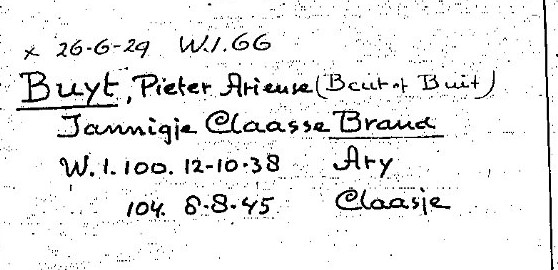 x 26-6-29 W.1.66
Buyt, Pieter Arieuse (Bcut of Buit)
Jannigje Claasse Brand
W.1.100. 12-10-38 Ary
104. 8-8-45 Claasje